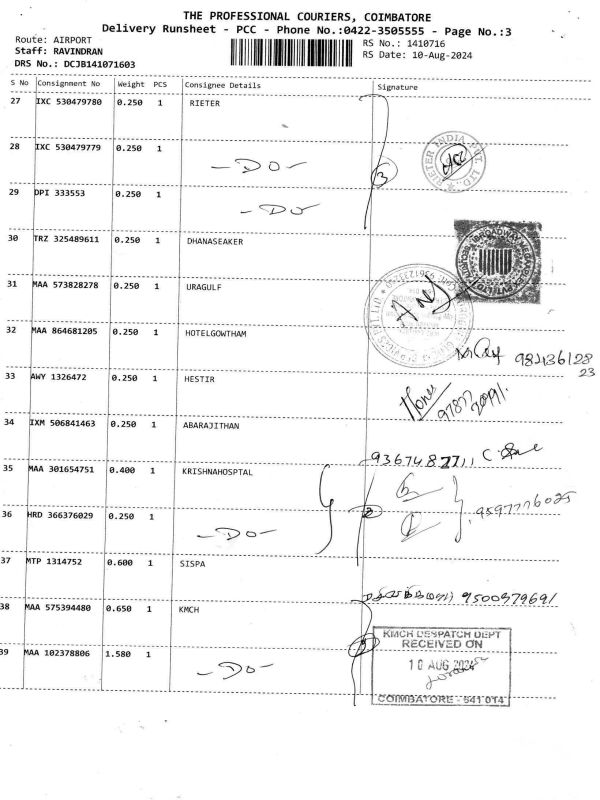 THE PROFESSIONAL COURIERS, COIMBATORE
Delivery Runsheet - PCC - Phone No.:0422-3505555 - Page No.:3
Route: AIRPORT
Staff: RAVINDRAN
DRS No.: DCJB141071603
RS No.: 1410716
RS Date: 10-Aug-2024
S No Consignment No Weight PCS Consignee Details Signature
27 IXC 530479780 0.250 1 RIETER
28 IXC 530479779 0.250 1
-DO-
3
RIETER INDIA PVT. LTD.
29 DPI 333553 0.250 1
-DO-
30 TRZ 325489611 0.250 1 DHANASEAKER
31 MAA 573828278 0.250 1 URAGULF
32 MAA 864681205 0.250 1 HOTELGOWTHAM
33 AWY 1326472 0.250 1 HESTIR
34 IXM 506841463 0.250 1 ABARAJITHAN
35 MAA 301654751 0.400 1 KRISHNAHOSPTAL
36 HRD 366376029 0.250 1
-DO-
2
37 MTP 1314752 0.600 1 SISPA
9500379691
38 MAA 575394480 0.650 1 KMCH
KMCH DESPATCH DEPT
RECEIVED ON
10 AUG 2024
COIMBATORE - 641 014
39 MAA 102378806 1.580 1
-DO-